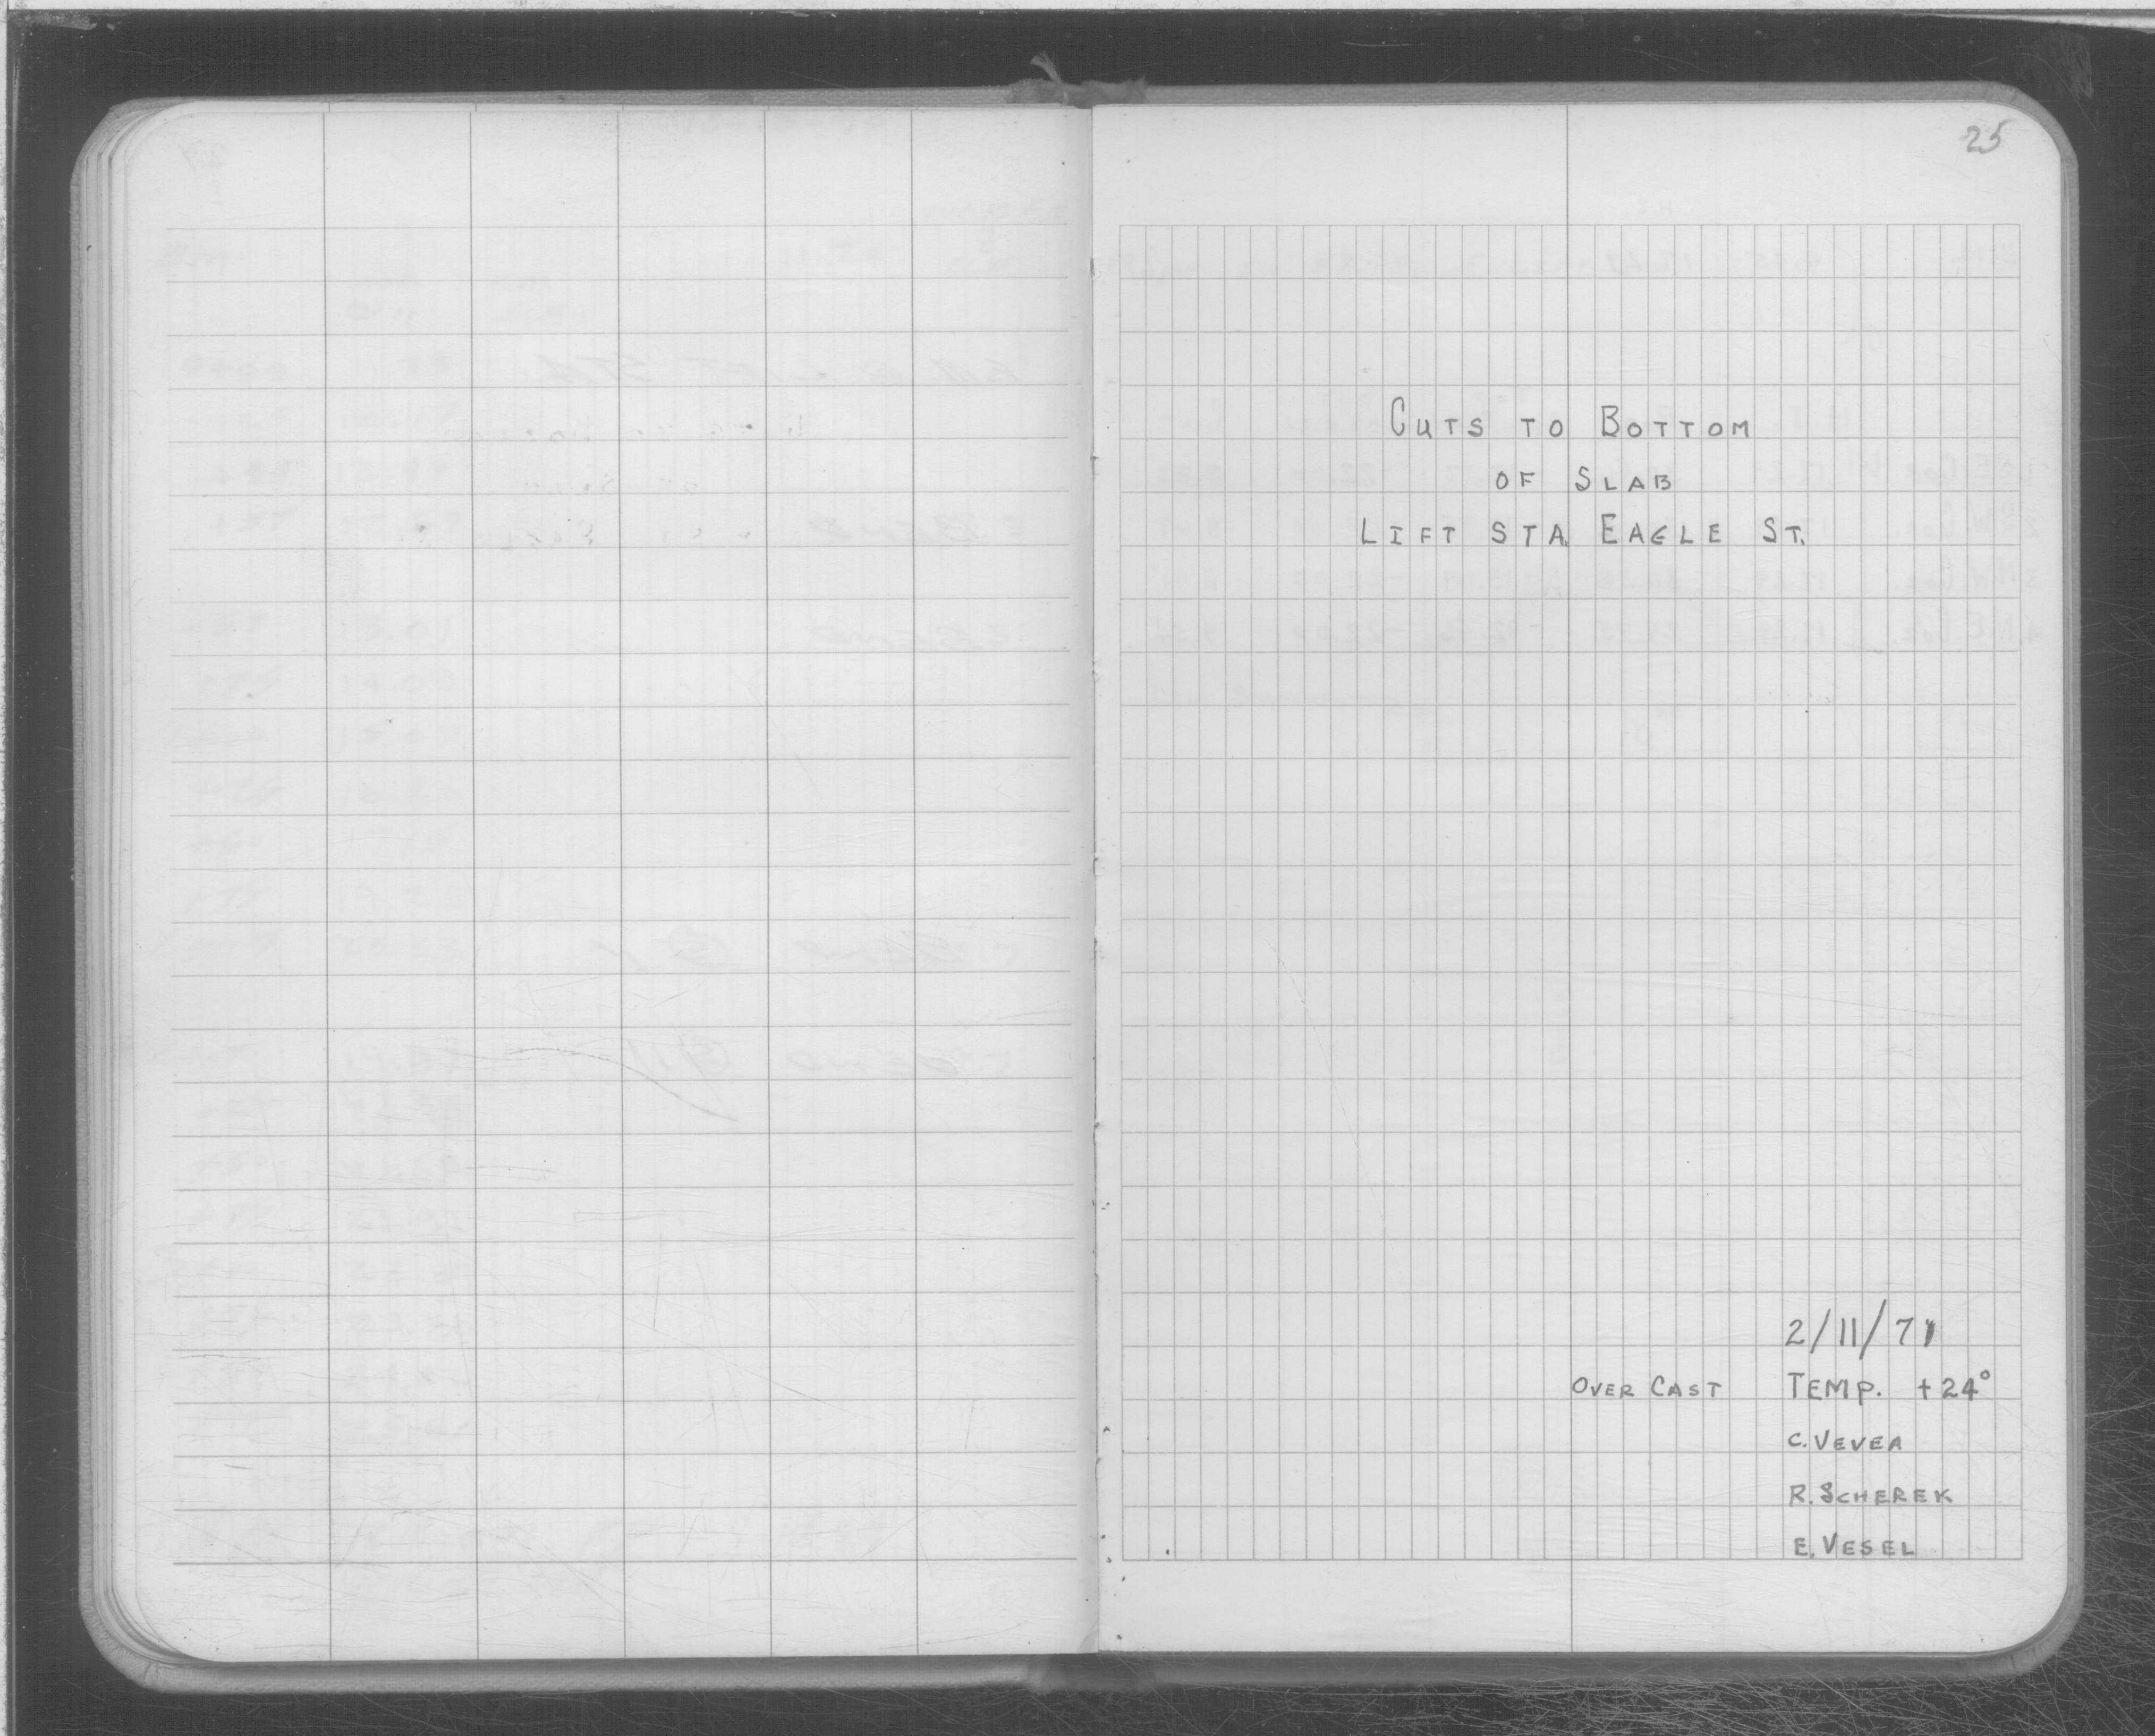 25
CUTS TO BOTTOM
OF SLAB
LIFT STA. EAGLE ST.
2/11/71
OVER CAST TEMP. +24°
C. VEVEA
R. SCHEREK
E. VESEL